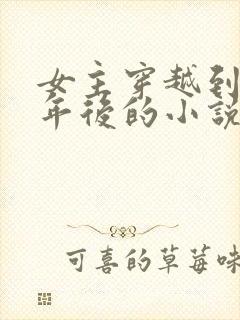 女主穿越到
年后的小说
可喜的草莓味